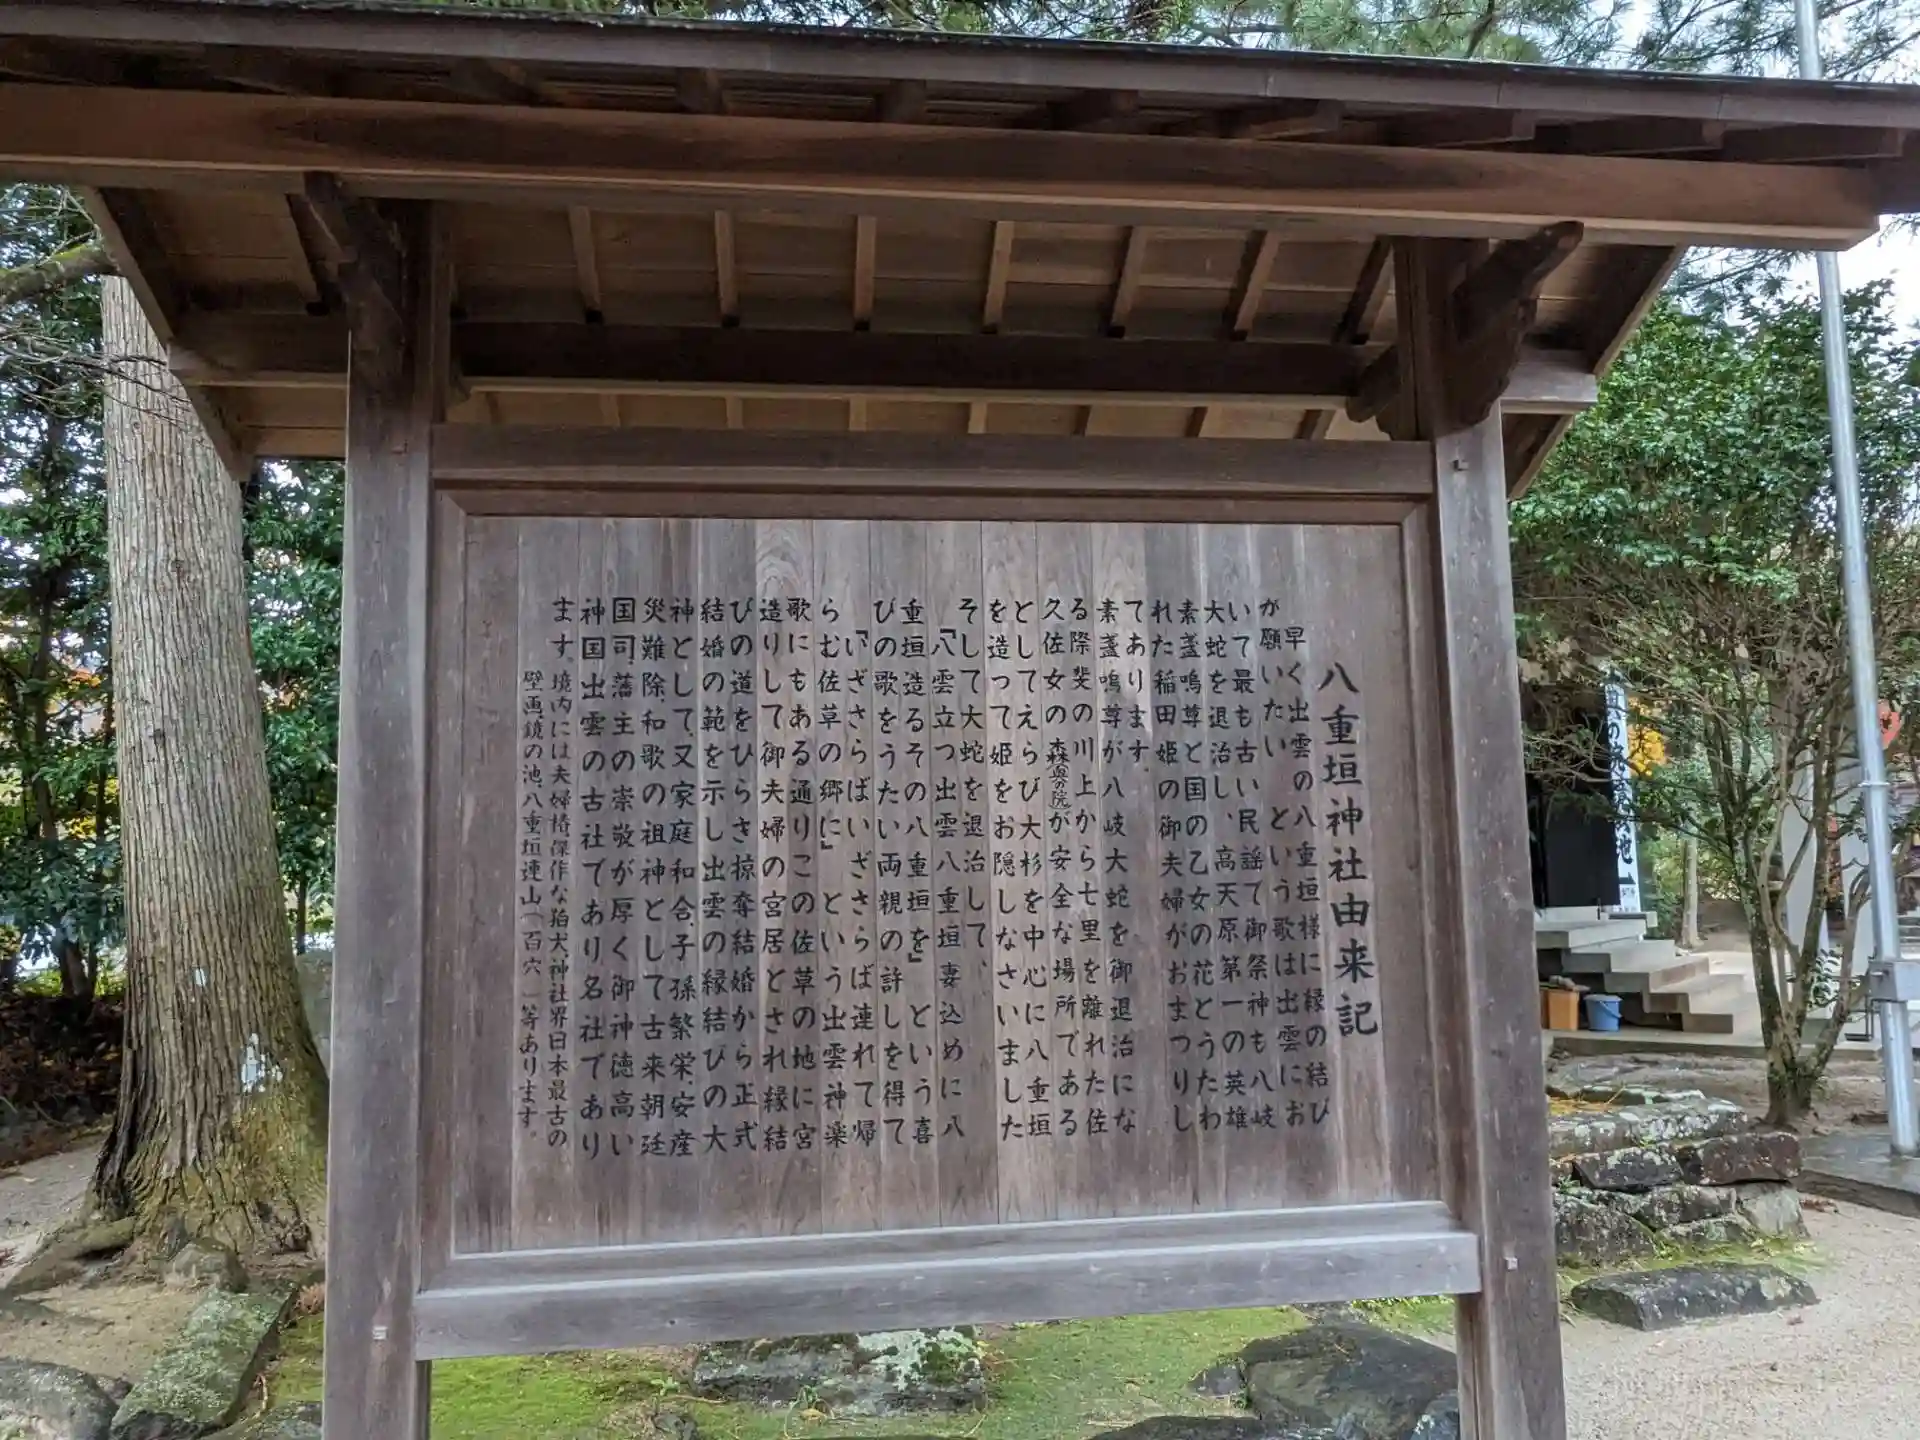 八重垣神社由来記
早く出雲の八重垣様に縁の結び
が願いたい という歌は出雲にお
いて最も古い民謡で御祭神も八岐
大蛇を退治し、高天原第一の英雄
素盞鳴尊と国の乙女の花とうたわ
れた稲田姫の御夫婦がおまつりし
てあります。
素盞鳴尊が八岐大蛇を御退治にな
る際斐の川上から七里を離れた佐
久佐女の森(奥の院)が安全な場所である
としてえらび大杉を中心に八重垣
を造って姫をお隠しなさいました
そして大蛇を退治して、
「八雲立つ出雲八重垣妻込めに八
重垣造るその八重垣を」という喜
びの歌をうたい両親の許しを得て
「いざさらばいざさらば連れて帰
らむ佐草の郷に」という出雲神楽
歌にもある通りこの佐草の地に宮
造りして御夫婦の宮居とされ縁結
びの道をひらき掠奪結婚から正式
結婚の範を示し出雲の縁結びの大
神として、又家庭和合、子孫繁栄、安産
災難除、和歌の祖神として古来朝廷
国司、藩主の崇敬が厚く御神徳高い
神国出雲の古社であり名社であり
ます。境内には夫婦椿傑作な狛犬、神社界日本最古の
壁画、鏡の池、八重垣連山(百穴)等あります。